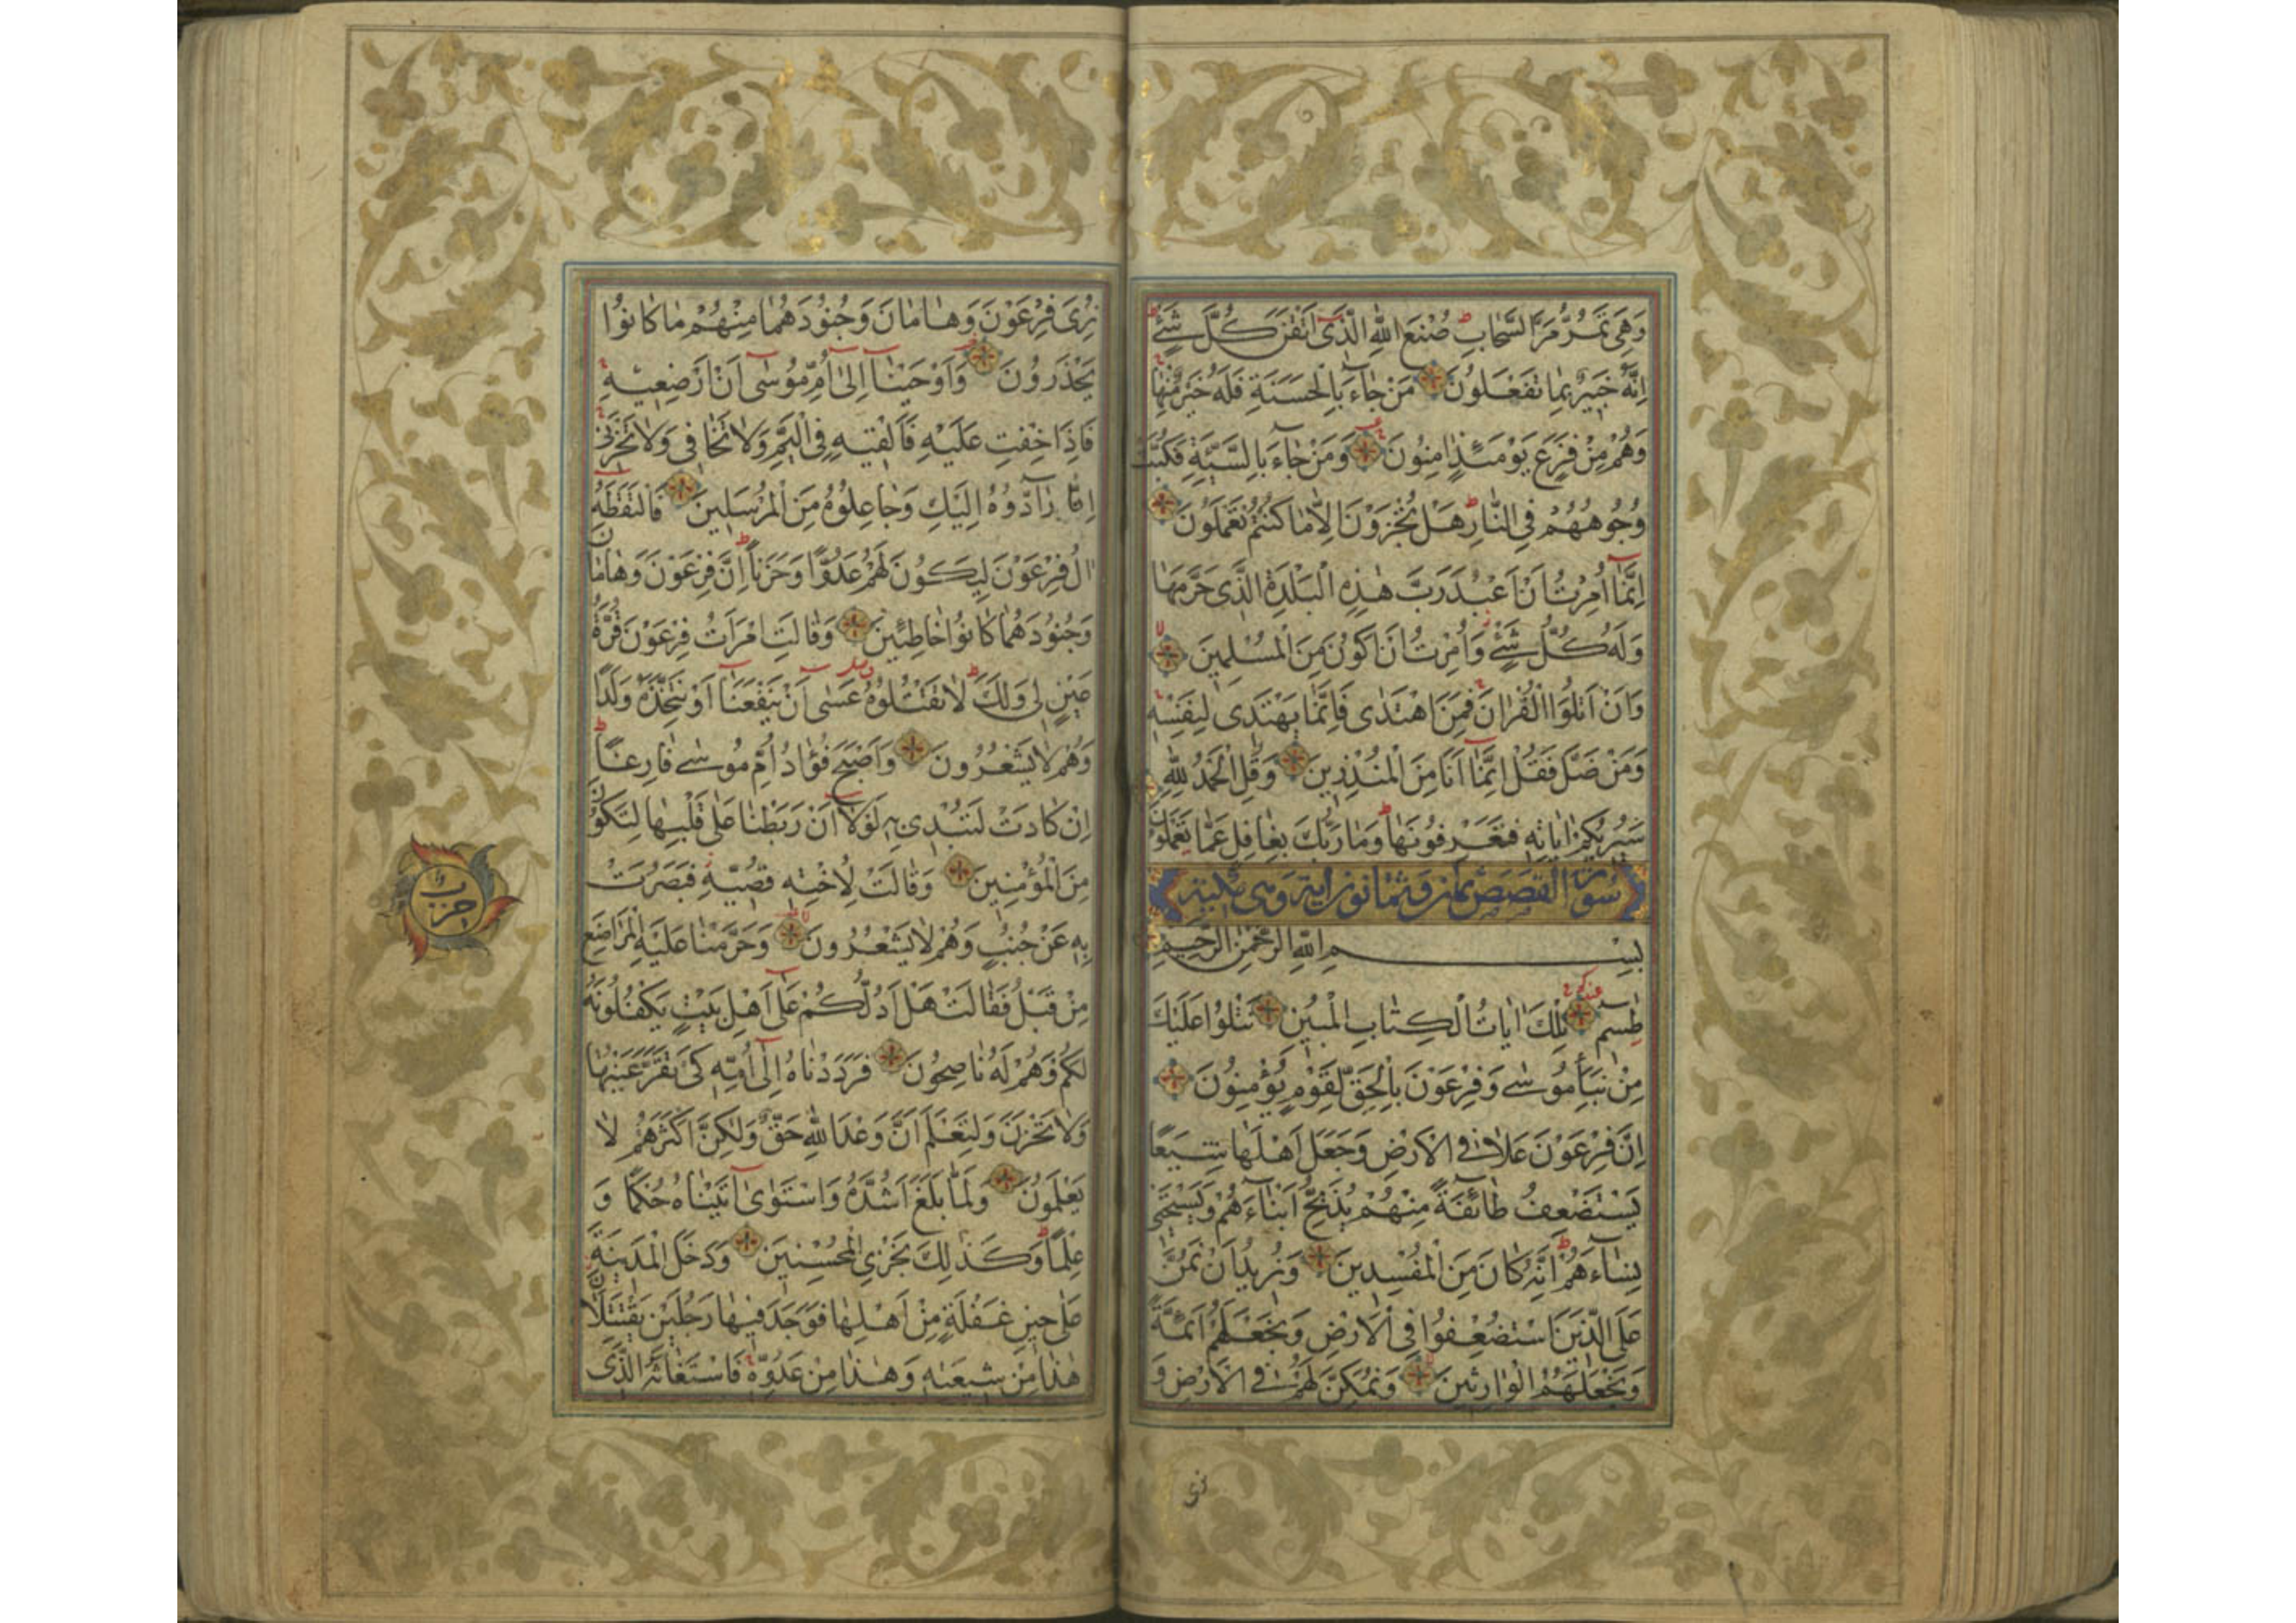 وَهِیَ تَمُرُّ مَرَّ السَّحٰابِ صُنْعَ اللّٰهِ الَّذٖی اَتْقَنَ كُلَّ شَیْءٍ
اِنَّهُ خَبٖیرٌ بِمٰا تَفْعَلُونَ مَنْ جٰآءَ بِالْحَسَنَةِ فَلَهُ خَیْرٌ مِنْهٰا
وَهُمْ مِنْ فَزَعٍ یَوْمَئِذٍ اٰمِنُونَ وَمَنْ جٰآءَ بِالسَّیِّئَةِ فَكُبَّتْ
وُجُوهُهُمْ فِی النّٰارِ هَلْ تُجْزَوْنَ اِلّٰا مٰا كُنْتُمْ تَعْمَلُونَ
اِنَّمٰآ اُمِرْتُ اَنْ اَعْبُدَ رَبَّ هٰذِهِ الْبَلْدَةِ الَّذٖی حَرَّمَهٰا
وَلَهُ كُلُّ شَیْءٍ وَاُمِرْتُ اَنْ اَكُونَ مِنَ الْمُسْلِمٖینَ
وَاَنْ اَتْلُوَا الْقُرْاٰنَ فَمَنِ اهْتَدٰی فَاِنَّمٰا یَهْتَدٖی لِنَفْسِهٖ
وَمَنْ ضَلَّ فَقُلْ اِنَّمٰآ اَنَا مِنَ الْمُنْذِرٖینَ وَقُلِ الْحَمْدُ لِلّٰهِ
سَیُرٖیكُمْ اٰیٰاتِهٖ فَتَعْرِفُونَهٰا وَمٰا رَبُّكَ بِغٰافِلٍ عَمّٰا تَعْمَلُونَ
سورة القصص ثمان وثمانون اية وهی مكية
بِسْمِ اللّٰهِ الرَّحْمٰنِ الرَّحٖیمِ
طٰسٓمٓ تِلْكَ اٰیٰاتُ الْكِتٰابِ الْمُبٖینِ نَتْلُوا عَلَیْكَ
مِنْ نَبَأِ مُوسٰی وَفِرْعَوْنَ بِالْحَقِّ لِقَوْمٍ یُؤْمِنُونَ
اِنَّ فِرْعَوْنَ عَلٰا فِی الْاَرْضِ وَجَعَلَ اَهْلَهٰا شِیَعًا
یَسْتَضْعِفُ طٰآئِفَةً مِنْهُمْ یُذَبِّحُ اَبْنٰآءَهُمْ وَیَسْتَحْیٖی
نِسٰآءَهُمْ اِنَّهُ كٰانَ مِنَ الْمُفْسِدٖینَ وَنُرٖیدُ اَنْ نَمُنَّ
عَلَی الَّذٖینَ اسْتُضْعِفُوا فِی الْاَرْضِ وَنَجْعَلَهُمْ اَئِمَّةً
وَنَجْعَلَهُمُ الْوٰارِثٖینَ وَنُمَكِّنَ لَهُمْ فِی الْاَرْضِ وَ
نری
نُرِیَ فِرْعَوْنَ وَهٰامٰانَ وَجُنُودَهُمٰا مِنْهُمْ مٰا كٰانُوا
یَحْذَرُونَ وَاَوْحَیْنٰآ اِلٰٓی اُمِّ مُوسٰٓی اَنْ اَرْضِعٖیهِ
فَاِذٰا خِفْتِ عَلَیْهِ فَاَلْقٖیهِ فِی الْیَمِّ وَلٰا تَخٰافٖی وَلٰا تَحْزَنٖی
اِنّٰا رٰآدُّوهُ اِلَیْكِ وَجٰاعِلُوهُ مِنَ الْمُرْسَلٖینَ فَالْتَقَطَهُ
اٰلُ فِرْعَوْنَ لِیَكُونَ لَهُمْ عَدُوًّا وَحَزَنًا اِنَّ فِرْعَوْنَ وَهٰامٰانَ
وَجُنُودَهُمٰا كٰانُوا خٰاطِئٖینَ وَقٰالَتِ امْرَاَتُ فِرْعَوْنَ قُرَّةُ
عَیْنٍ لٖی وَلَكَ لٰا تَقْتُلُوهُ عَسٰٓی اَنْ یَنْفَعَنٰآ اَوْ نَتَّخِذَهُ وَلَدًا
وَهُمْ لٰا یَشْعُرُونَ وَاَصْبَحَ فُؤٰادُ اُمِّ مُوسٰی فٰارِغًا
اِنْ كٰادَتْ لَتُبْدٖی بِهٖ لَوْلٰٓا اَنْ رَبَطْنٰا عَلٰی قَلْبِهٰا لِتَكُونَ
مِنَ الْمُؤْمِنٖینَ وَقٰالَتْ لِاُخْتِهٖ قُصّٖیهِ فَبَصُرَتْ
بِهٖ عَنْ جُنُبٍ وَهُمْ لٰا یَشْعُرُونَ وَحَرَّمْنٰا عَلَیْهِ الْمَرٰاضِعَ
مِنْ قَبْلُ فَقٰالَتْ هَلْ اَدُلُّكُمْ عَلٰٓی اَهْلِ بَیْتٍ یَكْفُلُونَهُ
لَكُمْ وَهُمْ لَهُ نٰاصِحُونَ فَرَدَدْنٰاهُ اِلٰٓی اُمِّهٖ كَیْ تَقَرَّ عَیْنُهٰا
وَلٰا تَحْزَنَ وَلِتَعْلَمَ اَنَّ وَعْدَ اللّٰهِ حَقٌّ وَلٰكِنَّ اَكْثَرَهُمْ لٰا
یَعْلَمُونَ وَلَمّٰا بَلَغَ اَشُدَّهُ وَاسْتَوٰٓی اٰتَیْنٰاهُ حُكْمًا وَ
عِلْمًا وَكَذٰلِكَ نَجْزِی الْمُحْسِنٖینَ وَدَخَلَ الْمَدٖینَةَ
عَلٰی حٖینِ غَفْلَةٍ مِنْ اَهْلِهٰا فَوَجَدَ فٖیهٰا رَجُلَیْنِ یَقْتَتِلٰانِ
هٰذٰا مِنْ شٖیعَتِهٖ وَهٰذٰا مِنْ عَدُوِّهٖ فَاسْتَغٰاثَهُ الَّذٖی
حزب